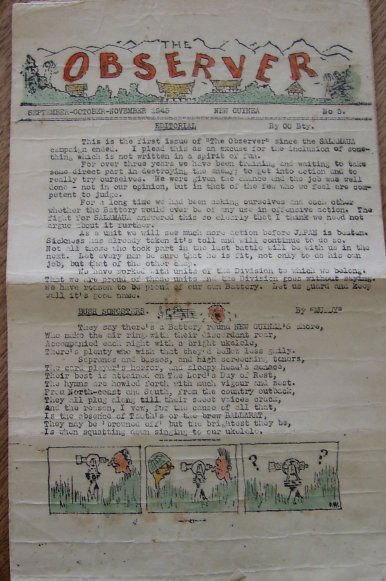 THE
OBSERVER
SEPTEMBER-OCTOBER-NOVEMBER 1943 NEW GUINEA No 5.
EDITORIAL By OC Bty.
This is the first issue of "The Observer" since the SALAMAUA
campaign ended. I plead this as an excuse for the inclusion of some-
thing which is not written in a spirit of fun.
For over three years we have been training and waiting to take
some direct part in destroying the enemy; to get into action and to
really try ourselves. We were given the chance and the job was well
done - not in our opinion, but in that of the few who we feel are com-
petent to judge.
For a long time we had been asking ourselves and each other
whether the Battery would ever be of any use in offensive action. The
fight for SALAMAUA answered this so clearly that I think we need not
argue about it further.
As a unit we will see much more action before JAPAN is beaten.
Sickness has already taken it's toll and will continue to do so.
Not all those who took part in the last battle will be with us in the
next. Let every man be sure that he is fit, not only to do his own
job, but that of the other chap.
We have worked with units of the Division to which we belong.
That we are proud of these units and the Division goes without saying.
We have reason to be proud of our own Battery. Let us guard and keep
well it's good name.
BUSH SONGSTERS. By "MUDDY"
They say there's a Battery round NEW GUINEA'S shore,
Who make the air ring with their discordant roar,
Accompanied each night with a bright ukelele,
There's plenty who wish that they'd bellow less gaily.
Sopranos and basses, and high screeching tenors,
The card player's horror, and sleepy head's menace,
Their best is attained on The Lord's Day of Rest,
The hymns are howled forth with much vigour and zest.
From North-coast and South, from the country outback,
They all plug along till their sweet voices crack,
And the reason, I vow, for the cause of all that,
Is the absence of Tooth's or the brew BALLARAT.
They may be 'browned off' but the brightest they be,
Is when squatting down singing to our ukelele.
? ?